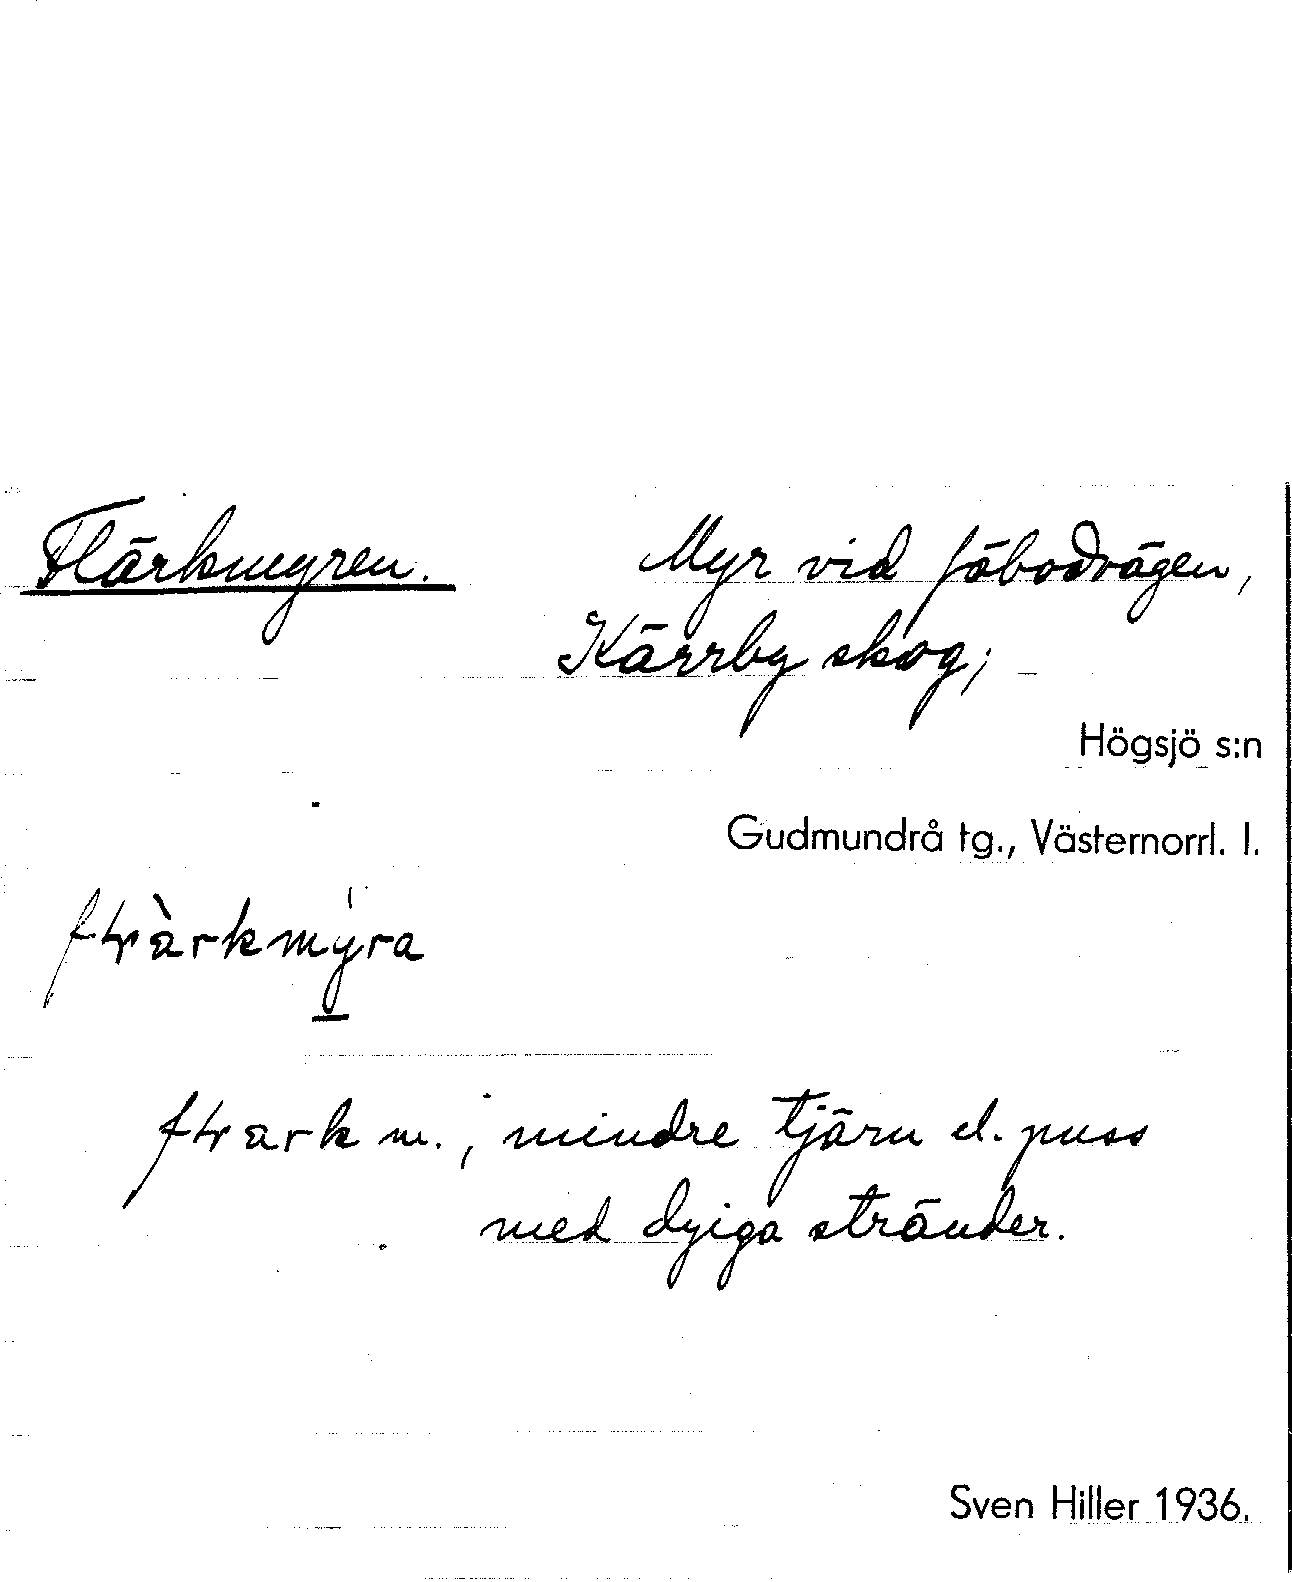 Flärkmyren. Myr vid fäbodvägen,
Kärrby skog;
Högsjö s:n
Gudmundrå tg., Västernorrl. l.
mindre tjärn el. puss
med dyiga stränder.
Sven Hiller 1936.